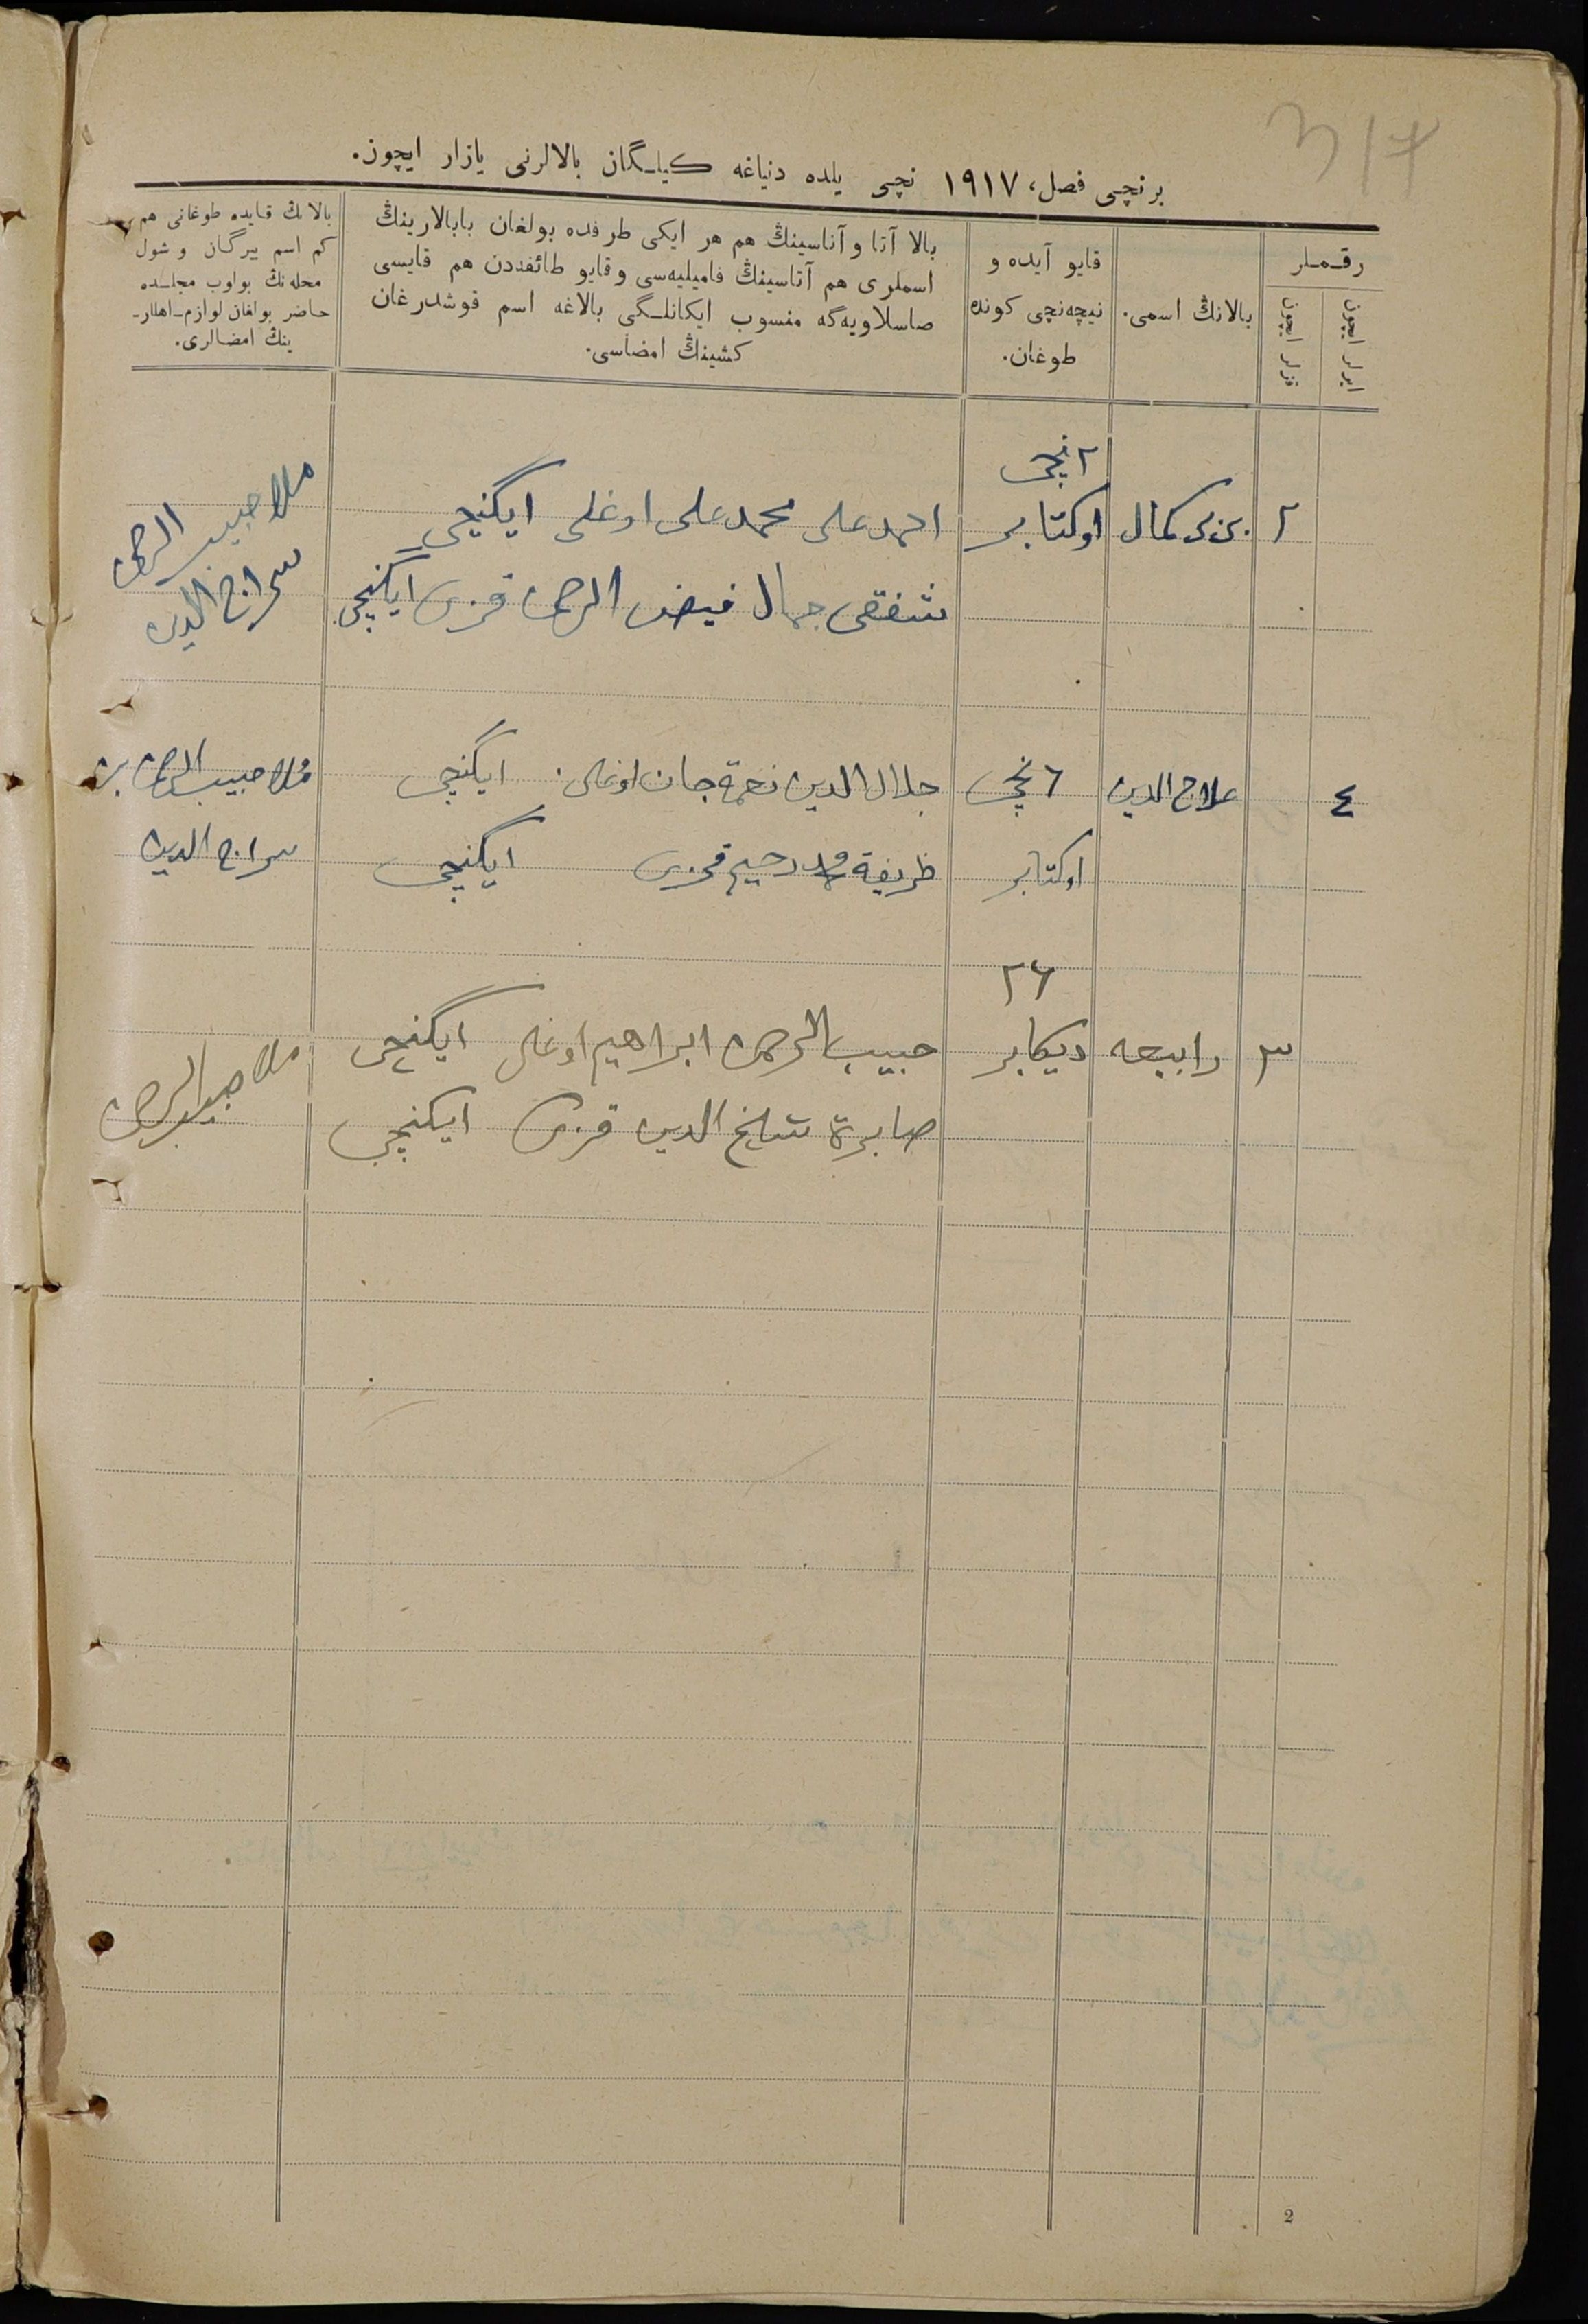 317
برنچی فصل، ١٩١٧ نچی یلده دنیاغه کیلگان بالالرنی یازار ایچون.
رقملر
ایرلر ایچون
قزلر ایچون
بالانڭ اسمی.
قایو آیده و
نیچه‌نچی کونده
طوغان.
بالا آتا و آناسینڭ هم هر ایکی طرفده بولغان بابالارینڭ
اسملری هم آتاسینڭ فامیلیه‌سی و قایو طائفه‌دن هم قایسی
صاسلاویه‌گه منسوب ایکانلگی بالاغه اسم قوشدرغان
کشینڭ امضاسی.
بالانڭ قایده طوغانی هم
کم اسم بیرگان و شول
محله‌نڭ بولوب مجلسده
حاضر بولغان لوازم اهللر-
ینڭ امضالری.
٢
کمال
٢ نچی
اوکتابر
احمد علی محمد علی اوغلی ایگنچی
جمال فیض الرحمن قزی ایگنچی
ملا حبیب الرحمن
سراج الدین
٤
علاج الدین
٦ نچی
اوکتابر
جلال الدین نعمة جان اوغلی ایگنچی
ظریفة محمد رحیم قزی ایگنچی
ملا حبیب الرحمن بن
سراج الدین
٣
رابیعه
٢٦
دیکابر
حبیب الرحمن ابراهیم اوغلی ایگنچی
صابرة شیخ الدین قزی ایکنچی
ملا حبیب الرحمن
2